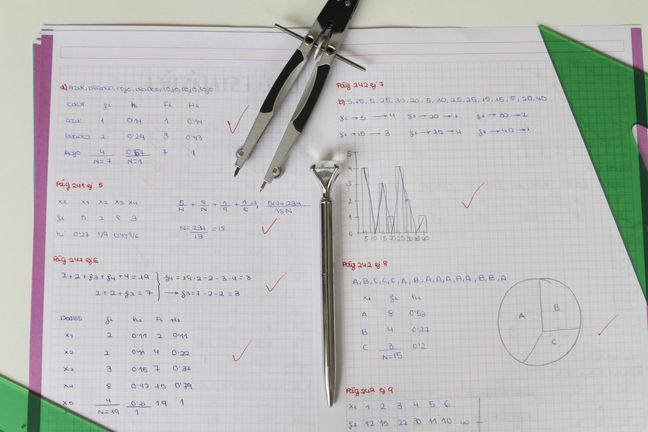 a) Azul, blanco, rojo, blanco, rojo, rojo, rojo
Color fi hi Fi Hi
Azul 1 0'14 1 0'14
Blanco 2 0'29 3 0'43
Rojo 4 0'57 7 1
N=7 N=1
Pág 241 ej 5
xi x1 x2 x3 x4
fi 5 2 8 3
N=234/13=18
Pág 241 ej 6
2+2+f3+f4+4=19
2+2+f3=7 → f3=7-2-2=3
Datos fi hi Fi Hi
x1 2 0'11 2 0'11
x2 2 0'11 4 0'22
x3 3 0'15 7 0'37
x4 8 0'42 15 0'79
x5 4 0'21 19 1
N=19 1
Pág 242 ej 7
b) 5, 15, 5, 25, 30, 20, 5, 30, 25, 25, 15, 15, 5, 25, 40
fi→5 →4 fi→20→1 fi→30→2
fi→15→3 fi→25→4 fi→40→1
5
4
3
2
1
0
5 10 15 20 25 30 35 40
Pág 242 ej 8
A, B, C, C, C, A, B, A, A, A, A, A, B, B, A
xi fi hi
A 8 0'53
B 4 0'27
C 3 0'2
N=15
A
B
C
Pág 242 ej 9
xi 1 2 3 4 5 6